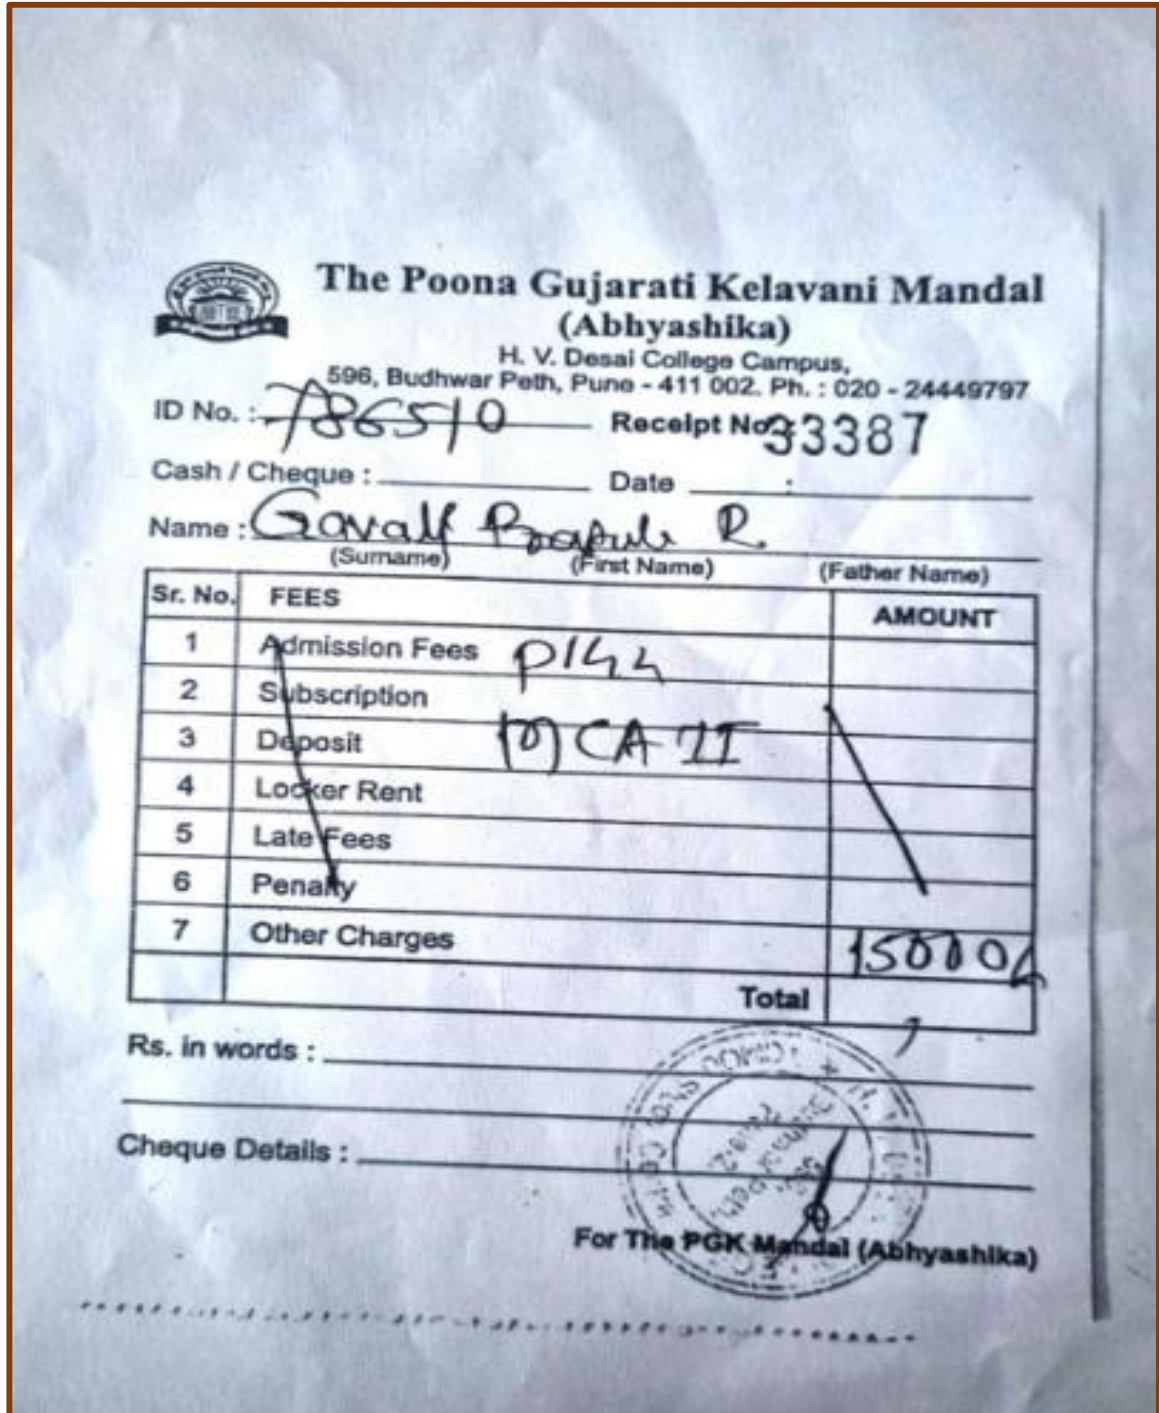 The Poona Gujarati Kelavani Mandal
(Abhyashika)
H. V. Desai College Campus,
596, Budhwar Peth, Pune - 411 002. Ph. : 020 - 24449797
ID No. : 786510 Receipt No.: 33387
Cash / Cheque : Date :
Name : R.
(Surname) (First Name) (Father Name)
Sr. No. FEES AMOUNT
1 Admission Fees
2 Subscription
3 Deposit MCA II
4 Locker Rent
5 Late Fees
6 Penalty
7 Other Charges 15000/-
Total
Rs. in words :
Cheque Details :
For The PGK Mandal (Abhyashika)